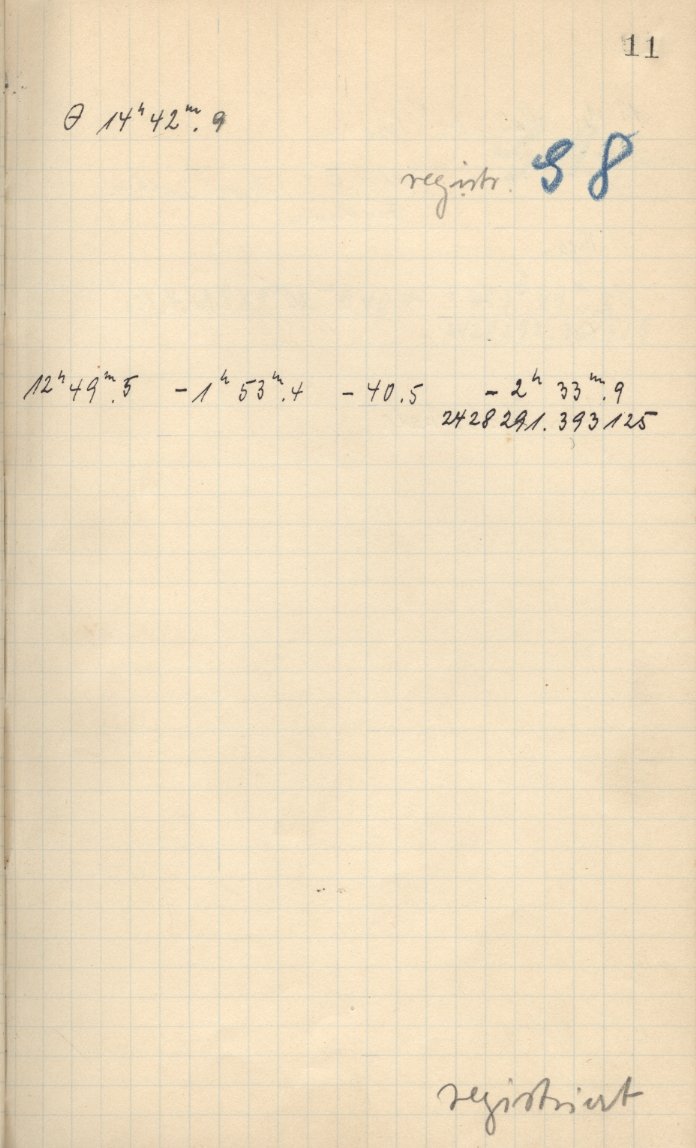 11
θ 14ʰ42ᵐ.9
registr. 98
12ʰ49ᵐ.5 -1ʰ53ᵐ.4 -40.5 -2ʰ33ᵐ.9
2428291.393125
registriert